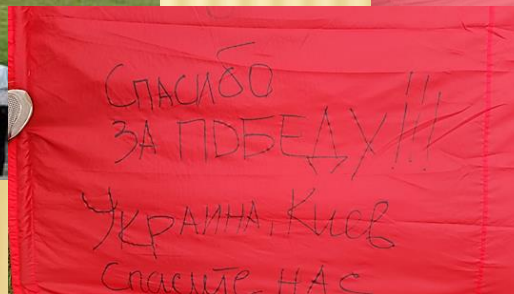 Спасибо
ЗА ПОБЕДУ!!!
Украина, Киев
Спасите НАС